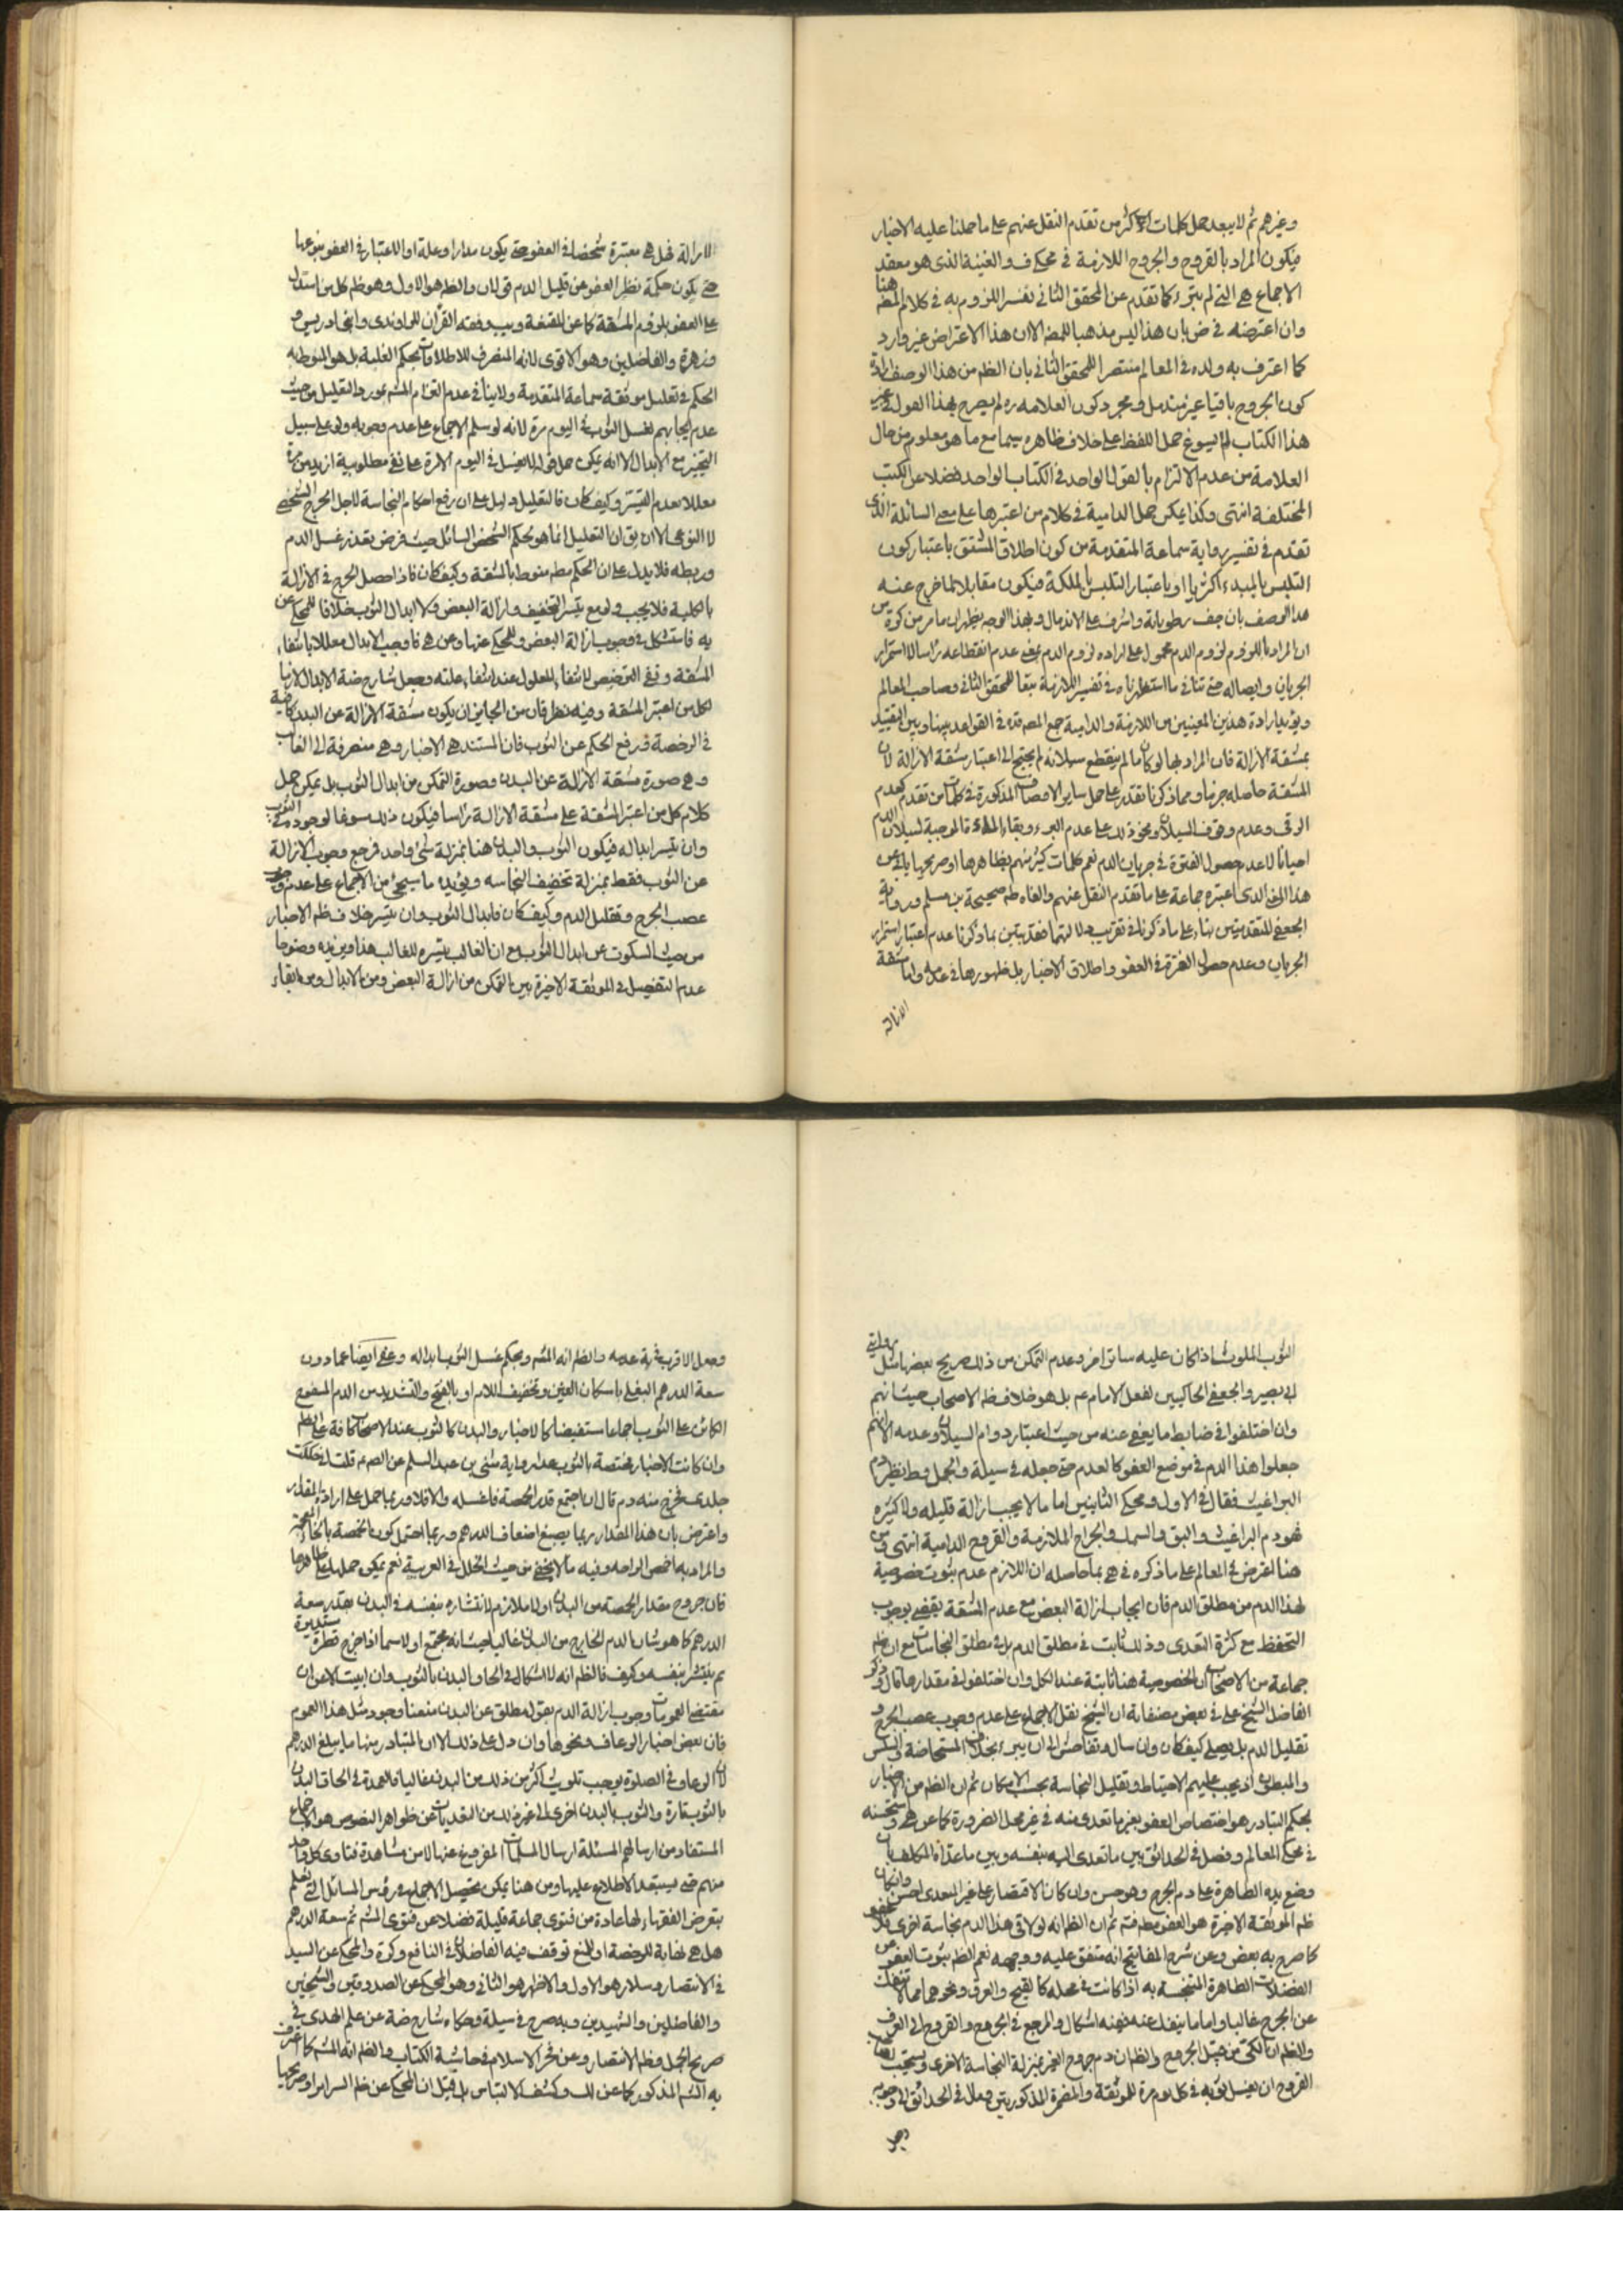 وغيرهم ثم لا يبعد حمل كلمات الاكثر من تقدم النقل عنهم على ما حملنا عليه الاخبار
فيكون المراد بالقروح والجروح اللازمة في محكي ف والغنية الذى هو معقد
الاجماع هي التي لم تبرء كما تقدم عن المحقق الثانى تفسير اللزوم به في كلام المصنف هنا
وان اعترضه في ض بان هذا ليس مذهبا للمصنف الا ان هذا الاعتراض غير وارد
كما اعترف به ولده في المعالم منتصرا للمحقق الثانى بان الظم من هذا الوصف ارادة
كون الجروح باقيا غير مندمل ومجرد كون العلامه ره لم يصرح بهذا القول في غير
هذا الكتاب لا يسوغ حمل اللفظ على خلاف ظاهره سيما مع ما هو معلوم من حال
العلامة من عدم الالتزام بالقول الواحد في الكتاب الواحد فضلا عن الكتب
المختلفة انتهى وكذا يمكن حمل الدامية في كلام من اعتبرها على معنى السائلة الذى
تقدم في تفسير رواية سماعة المتقدمة من كون اطلاق المشتق باعتبار كون
التلبس بالمبدء اكثريا او باعتبار التلبس بالملكة فيكون مقابلا لما خرج عنه
هذا الوصف بان جف رطوباته واشرف على الاندمال وبهذا الوجه يظهر ان ما مر من كرة من
ان المراد باللزوم لزوم الدم محمول على ارادة لزوم الدم بمعنى عدم انقطاعه راسا لا استمرار
الجريان وايصاله حتى تنافي ما استظهرناه في تفسير اللازمة تبعا للمحقق الثانى وصاحب المعالم
ويؤيد ارادة هذين المعنيين من اللازمة والدامية جمع المصنف قده في القواعد بينها وبين التقييد
بمشقة الازالة فان المراد بها لو كان ما لم ينقطع سيلانه لم يحتج الى اعتبار مشقة الازالة لان
المشقة حاصله جزما ومما ذكرنا تقدر على حمل ساير الاوصاف المذكورة في كلمات من تقدم كعدم
الرقى وعدم وقوف السيلان ونحو ذلك على عدم البرء وبقاء المادة الموجبة لسيلان الدم
احيانا لا عدم حصول الفتور في جريان الدم نعم كلمات كثير منهم بظاهرها او صريحها يابى عن
هذا المعنى الذى اعتبره جماعة على ما تقدم النقل عنهم والعاه طه صحيحة بن مسلم ورواية
الجعفى المتقدمتين بناء على ما ذكرنا في تقريب دلالتهما فقد تبين بما ذكرنا عدم اعتبار استمرار
الجريان وعدم حصول الفترة في العفو واطلاق الاخبار بل ظهورها في عدمه واما مشقة
الازالة
الازالة فهل هي معتبرة شخصا في العفو حتى يكون مدارا وعلة او الاعتبار في العفو بنوعها
حتى يكون حكمة نظير العفو عن قليل الدم قولان والظم هو الاول وهو ظم كل من استدل
على العفو بلزوم المشقة كما عن المقنعة ويب وفقه القرآن للراوندى وابنى ادريس و
وزهرة والفاضلين وهو الاقوى لانه المنصرف للاطلاقات بحكم الغلبة بل هو المنوط به
الحكم في تعليل موثقة سماعة المتقدمة ولا ينافي عدم التزام المش بمورد التعليل من حيث
عدم ايجابهم لغسل الثوب في اليوم مرة لانه لو سلم الاجماع على عدم وجوبه ولو على سبيل
التخيير مع الابدال الا انه يمكن حمل قوله لا يغسل في اليوم الا مرة على نفي مطلوبية ازيد من مرة
معللا بعدم التيسر وكيف كان فالتعليل دليل على ان رفع احكام النجاسة لاجل الحرج الشخصى
لا النوعى الا ان يق ان التعليل انما هو بحكم الشخص السائل حيث فرض تعذر غسل الدم
وربطه فلا يدل على ان الحكم مطم منوط بالمشقة وكيف كان فاذا حصل الحرج في الازالة
بالكلية فلا يجب ولو مع تيسر التخفيف وازالة البعض ولا ابدال الثوب خلافا للمحكي عن
يه فاستشكل في وجوب ازالة البعض والمحكي عنها وعن هى فاوجب الابدال معللا بانتفاء
المشقة وفى الترخيص لانتفاء المعلول عند انتفاء علته وجعل شارح ضة الابدال لازما
لكل من اعتبر المشقة وفيه نظر فان من الجايز ان يكون مشقة الازالة عن البدن كافية
في الرخصة في رفع الحكم عن الثوب فان المستند هي الاخبار وهي منصرفة الى الغالب
وهي صورة مشقة الازالة عن البدن وصورة التمكن من ابدال الثوب بل يمكن حمل
كلام كل من اعتبر المشقة على مشقة الازالة راسا فيكون ذلك مسوغا لوجوده في الثوب
وان تيسر ابداله فيكون الثوب والبدن هنا بمنزلة شئ واحد فرجع وجوب الازالة
عن الثوب فقط بمنزلة تخفيف النجاسه ويؤيده ما سيجئ من الاجماع على عدم وجوب
عصب الجرح وتقليل الدم وكيف كان فابدال الثوب وان تيسر خلاف ظم الاخبار
من حيث السكوت عن ابدال الثوب مع ان الغالب تيسره للغالب هذا ويزيده وضوحا
عدم التفصيل في الموثقة الاخيرة بين التمكن من ازالة البعض ومن الابدال ومن ابقاء
الثوب الملوث اذا كان عليه ساتر اخر وعدم التمكن من ذلك صريح بعضها مثل روايتى
ابي بصير والجعفى الحاكيين لفعل الامام عم بل هو خلاف ظم الاصحاب حيث انهم
وان اختلفوا في ضابط ما يعفى عنه من حيث اعتبار دوام السيلان وعدمه الا انهم
جعلوا هذا الدم في موضع العفو كالعدم حتى جعله في سيلة والجمل وط نظير دم
البراغيث فقال في الاول ومحكي الثانيين اما ما لا يجب ازالة قليله ولا كثيره
فهو دم البراغيث والبق والسمك والجراح الملازمة والقروح الدامية انتهى ومن
هنا اعترض في المعالم على ما ذكروه في هى بما حاصله ان اللازم عدم ثبوت خصوصية
لهذا الدم من مطلق الدم فان ايجاب ازالة البعض مع عدم المشقة يقتضى وجوب
التحفظ مع كثرة التعدى وذلك ثابت في مطلق الدم بل في مطلق النجاسات مع ان ظم
جماعة من الاصحاب ان الخصوصية هنا ثابتة عند الكل وان اختلفوا في مقدارها قال وذكر
الفاضل الشيخ على في بعض مصنفاته ان الشيخ نقل الاجماع على عدم وجوب عصب الجرح و
تقليل الدم بل يصلى كيف كان وان سال وتفاحش الى ان يبرء بخلاف المستحاضة والسلس
والمبطون اذ يجب عليهم الاحتياط وتقليل النجاسة بحسب الامكان ثم ان الظم من الاخبار
بحكم التبادر هو اختصاص العفو بغير ما تعدى منه في غير محل الضرورة كما عن هى واستحسنه
في محكي المعالم وفصل في الحدائق بين ما تعدى اليه بنفسه وبين ما عداه المكلف بان
وضع يده الطاهرة على دم الجرح وهو حسن وان كان الاقتصار على غير المتعدى احسن وان كان
ظم الموثقة الاخيرة هو العفو مطم فتم ثم ان الظم انه لو لاقى هذا الدم نجاسة اخرى فلا عفو
كما صرح به بعض وعن شرح المفاتيح انه متفق عليه ووجهه نعم الظم ثبوت العفو عن
الفضلات الطاهرة المتنجسة به اذا كانت في محله كالقيح والعرق ونحوهما مما لا تنفك
عن الجرح غالبا واما ما ينفك عنه ففيه اشكال والمرجع في الجروح والقروح الى العرف
والظم ان الكى من قبيل الجروح والظم ان دم جروح الغير بمنزلة النجاسة الاخرى ويستحب لصاحب
القروح ان يغسل ثوبه في كل يوم مرة للموثقة والمضمرة المذكورتين ومال في الحدائق الى وجوبه
وجعل
وجعل الاقرب في ية عدمه والظم انه المش وبحكم غسل الثوب ابداله وعفى ايضا عما دون
سعة الدرهم البغلى باسكان الغين وتخفيف اللام او بالفتح والتشديد من الدم المسفوح
الكائن على الثوب اجماعا مستفيضا كالاخبار والبدن كالثوب عند الاصحاب كافة على الظم
وان كانت الاخبار مختصة بالثوب عدا رواية مثنى بن عبد السلم عن الصم عم قلت انى حككت
جلدى فخرج منه دم قال ان اجتمع قدر الحمصة فاغسله والا فلا وربما حمل على ارادة المقدار
واعترض بان هذا المقدار ربما يصبغ اضعاف الدرهم وربما احتمل كون الخمصة بالخاء المعجمة
والمراد به اخمص الراحه وفيه ما لا يخفى من حيث الخلل في العربية نعم يمكن حمله على ظاهرها
فان خروج مقدار الحمصة من البدن اولا ملازم لانتشاره بنفسه في البدن بقدر سعة
الدرهم كما هو شان الدم الخارج من البدن غالبا حيث انه يجتمع اولا سيما اذا خرج قطرة مستديرة
ثم ينتشر بنفسه وكيف فالظم انه لا اشكال في الحاق البدن بالثوب وان ابيت الا عن ان
مقتضى العمومات وجوب ازالة الدم بقول مطلق عن البدن منعنا وجود مثل هذا العموم
فان بعض اخبار الرعاف ونحوها وان دل على ذلك الا ان المتبادر منها ما يبلغ الدرهم
لان الرعاف في الصلوة يوجب تلويث اكثر من ذلك من البدن غالبا فالعمدة في الحاق البدن
بالثوب تارة والثوب بالبدن اخرى الى غير ذلك من التعديات عن ظواهر النصوص هو الاجماع
المستفاد من ارسالهم المسئلة ارسال المسلمات المفروغ عنها لا من مشاهدة فتاوى كل واحد
منهم حتى يستبعد الاطلاع عليها ومن هنا يمكن تحصيل الاجماع في رؤس المسائل التى نعلم
بتعرض الفقهاء لها عادة من فتوى جماعة قليلة فضلا عن فتوى المش ثم سعة الدرهم
هل هى غاية للرخصة او للمنع توقف فيه الفاضلان في النافع وكرة والمحكي عن السيد
في الانتصار وسلار هو الاول والاظهر هو الثانى وهو المحكي عن الصدوقين والشيخين
والفاضلين والشهيدين وبه صرح في سيلة وحكاه شارح ضة عن علم الهدى في
صريح الجمل وظم الانتصار وعن فخر الاسلام في حاشية الكتاب والظم انه المش كما اعترف
به الش المذكور كما عن لك وكشف الالتباس بل قيل ان المحكي عن ظم السرائر او صريحها